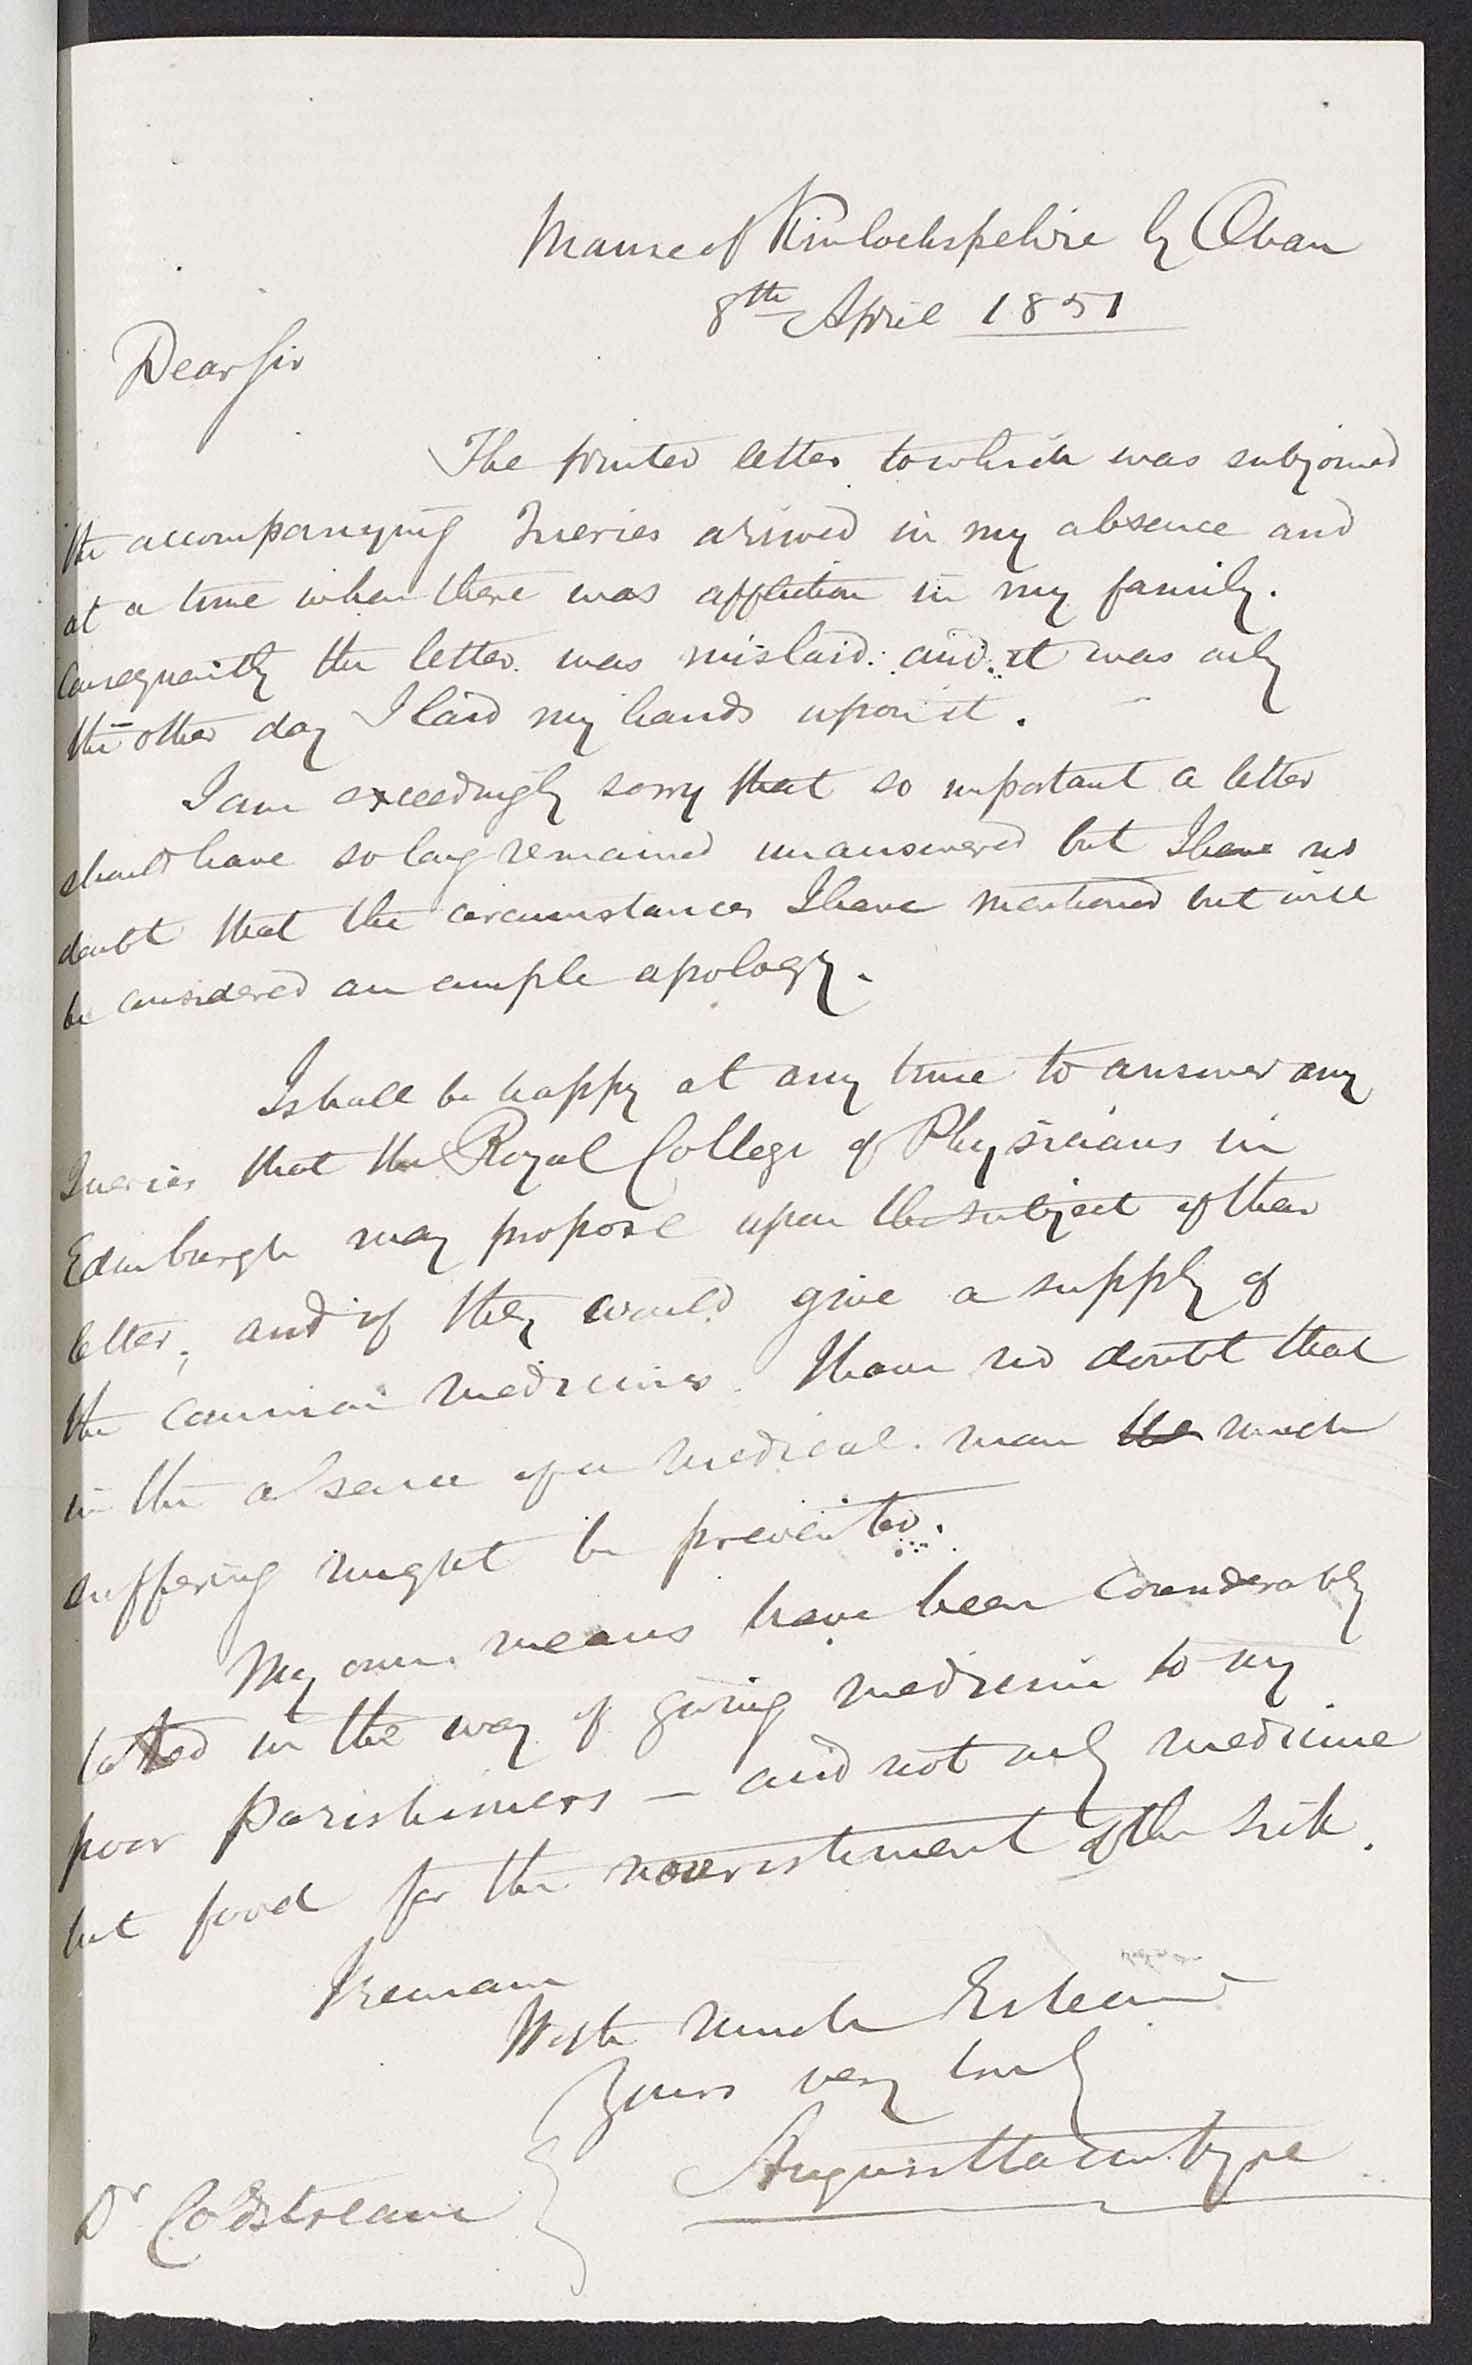 Manse of Kinlochspelvie by Oban
8th April 1851
Dear Sir
The printed letter to which was subjoined
the accompanying Queries arrived in my absence and
at a time when there was affliction in my family.
Consequently the letter was mislaid: and it was only
the other day I laid my hands upon it.
I am exceedingly sorry that so important a letter
should have so long remained unanswered but I have no
doubt that the circumstances I have mentioned but will
be considered an ample apology.
I shall be happy at any time to answer any
Queries that the Royal College of Physicians in
Edinburgh may propose upon the subject of their
letter, and if they would give a supply of
the common medicines I have no doubt that
in the absence of a medical man the much
suffering might be prevented.
My own means have been considerably
taxed in the way of giving medicine to my
poor Parishioners — and not only medicine
but food for the nourishment of the sick.
I remain
With much Esteem
Yours very truly
Angus Macintyre
Dr Coldstream